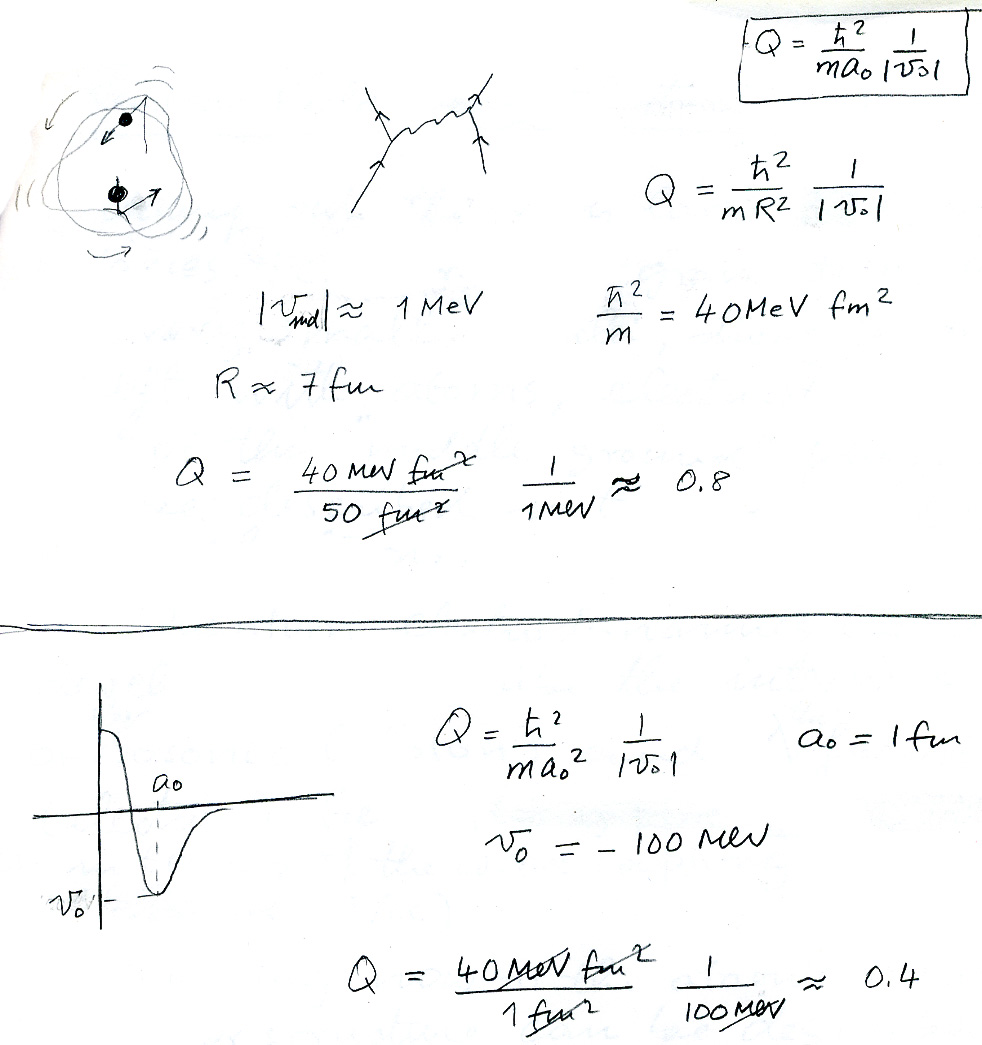 Q = ħ²/ma₀ 1/|v₀|
Q = ħ²/mR² 1/|v₀|
|v_ind| ≈ 1 MeV ħ²/m = 40 MeV fm²
R ≈ 7 fm
Q = 40 MeV fm²/50 fm² 1/1 MeV ≈ 0.8
Q = ħ²/ma₀² 1/|v₀| a₀ = 1 fm
a₀
v₀ = - 100 MeV
v₀
Q = 40 MeV fm²/1 fm² 1/100 MeV ≈ 0.4